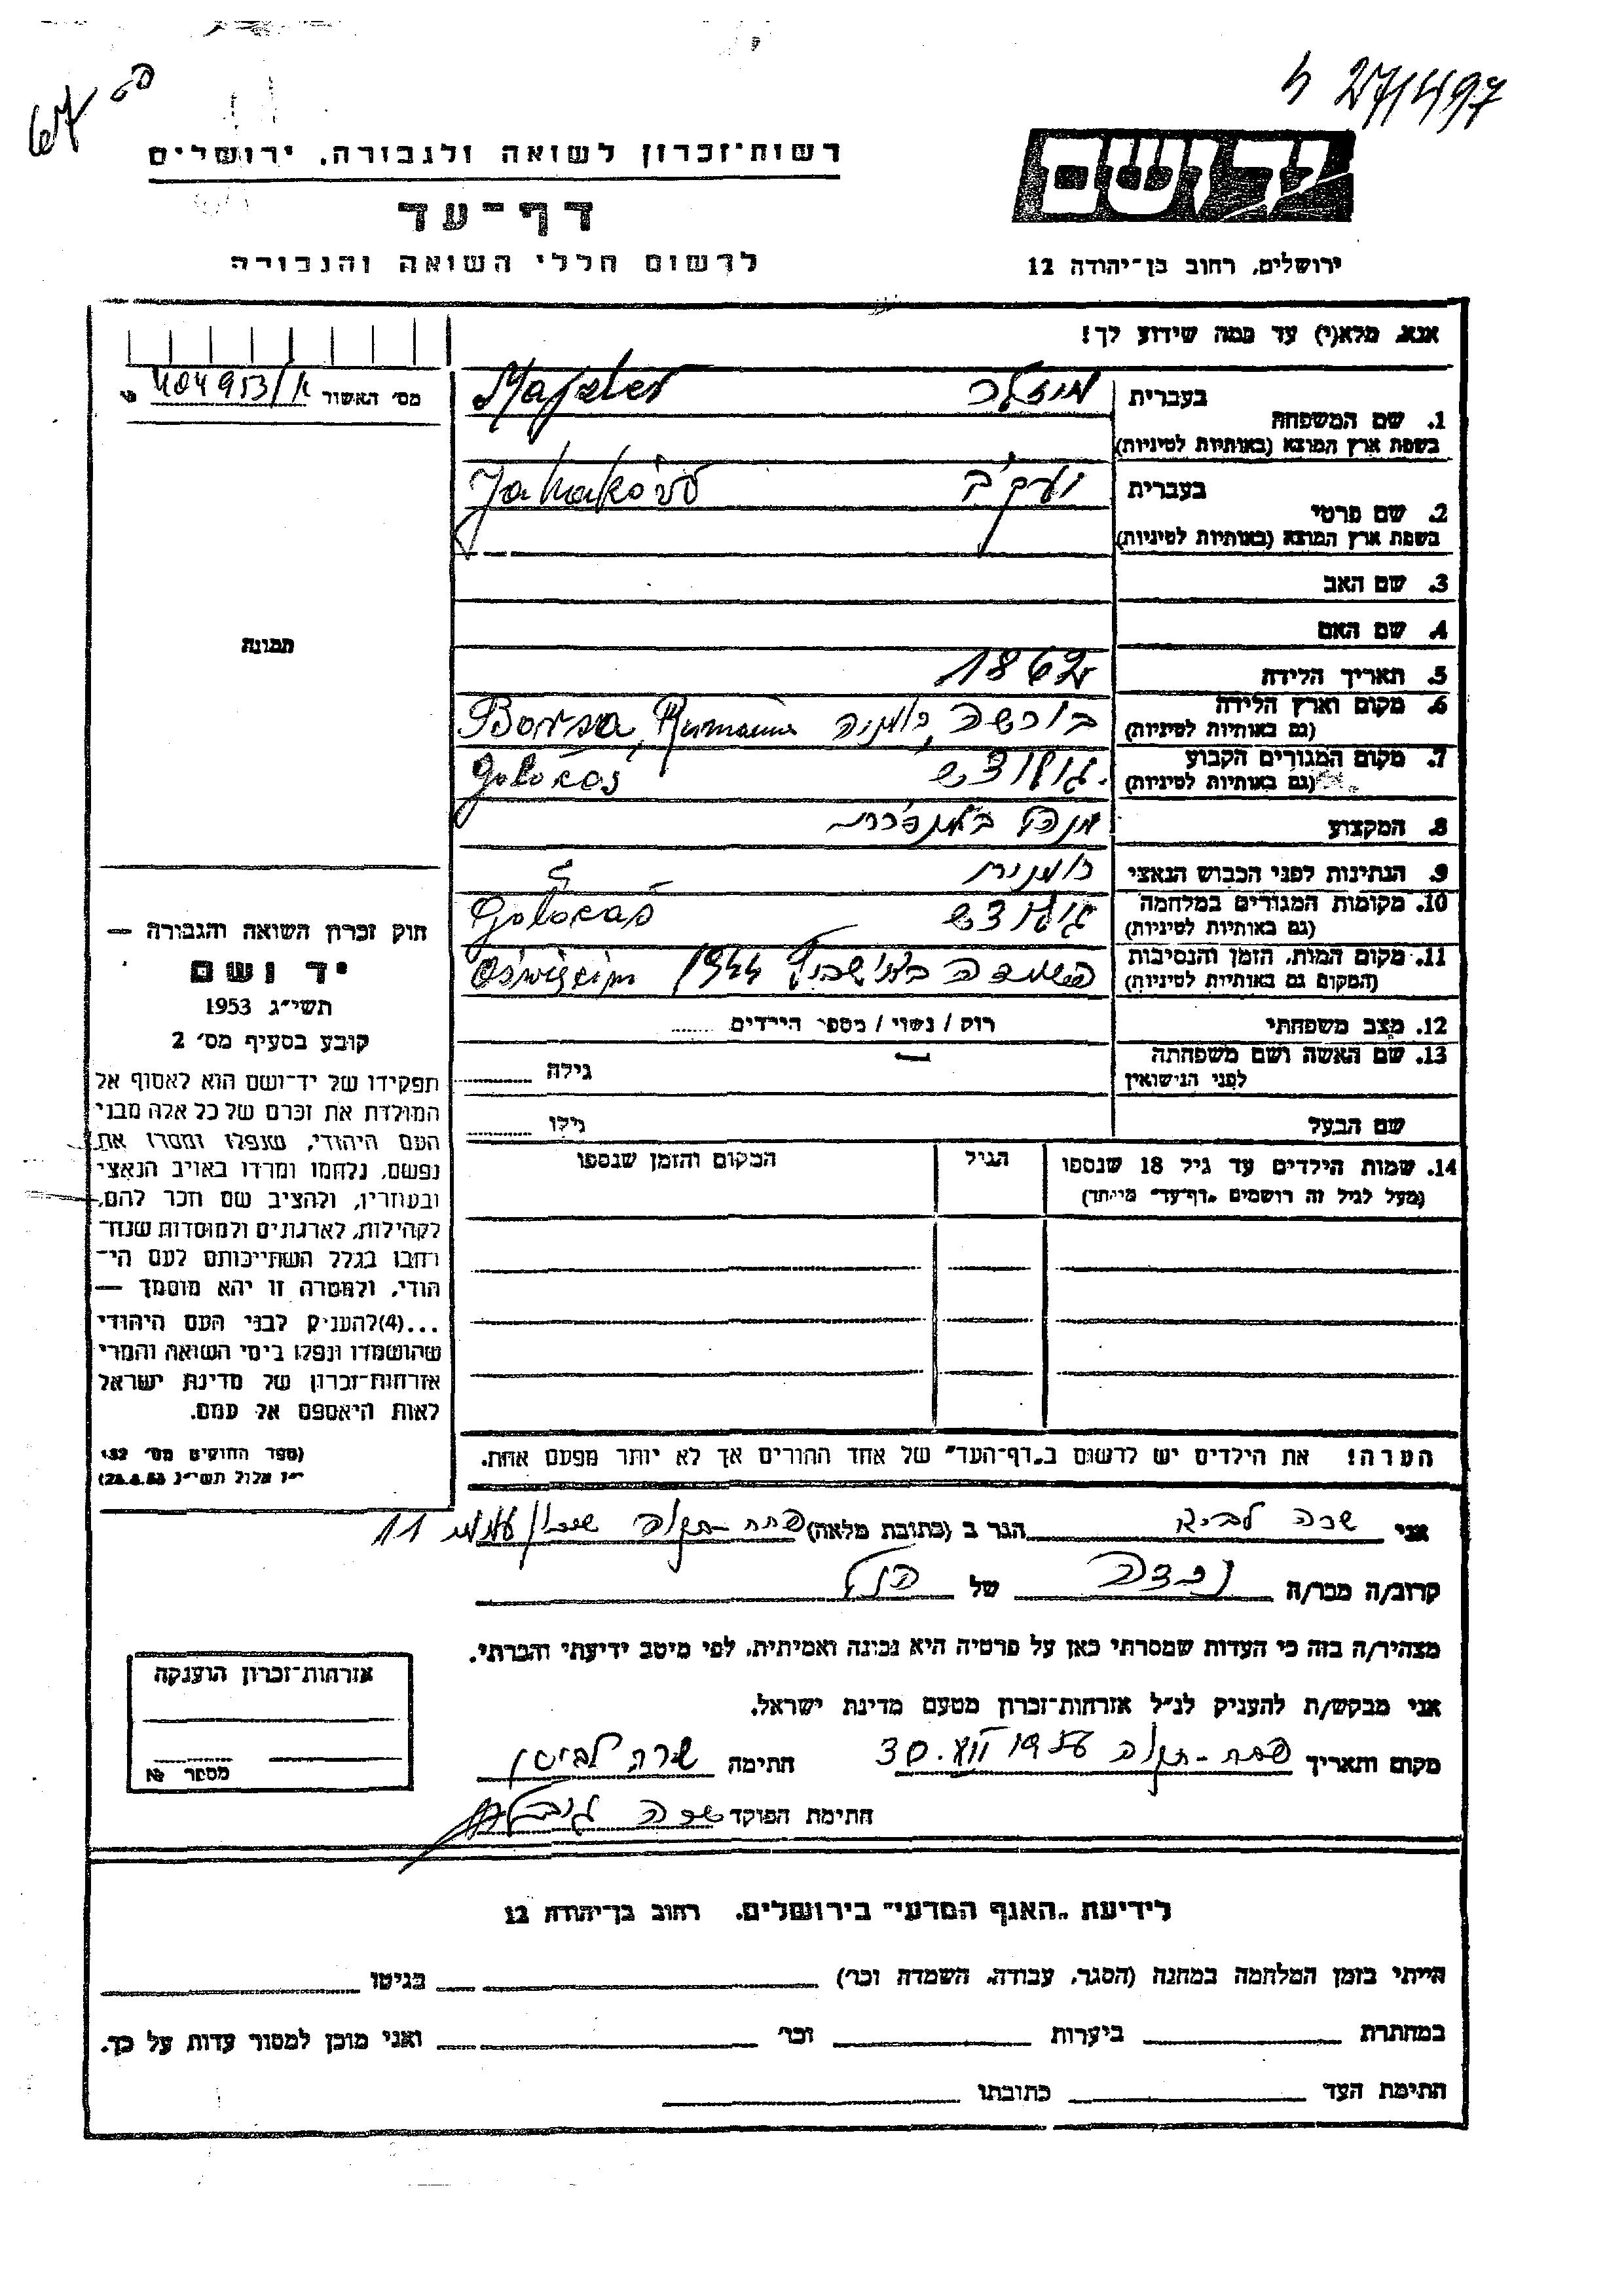 67
ה-
ה 27/497
רשות־זכרון לשואה ולגבורה, ירושלים
יד ושם
דף־עד
לרשום חללי השואה והגבורה
ירושלים, רחוב בן־יהודה 12
אנא, מלא(י) עד כמה שידוע לך!
מס׳ האשור 404953/א
1. שם המשפחה בעברית מיזלר Majzler
בשפת ארץ המוצא (באותיות לטיניות)
2. שם פרטי בעברית יעקב
בשפת ארץ המוצא (באותיות לטיניות)
3. שם האב
4. שם האם
תמונה
5. תאריך הלידה 1862
6. מקום וארץ הלידה בורשה, רומניה Borsa, Rumania
(גם באותיות לטיניות)
7. מקום המגורים הקבוע
(גם באותיות לטיניות)
8. המקצוע
9. הנתינות לפני הכבוש הנאצי רומנית
10. מקומות המגורים במלחמה
(גם באותיות לטיניות)
11. מקום המות, הזמן והנסיבות 1944 Oświęcim
(המקום גם באותיות לטיניות)
12. מצב משפחתי רווק / נשוי / מספר הילדים
13. שם האשה ושם משפחתה גילה
לפני הנישואין
שם הבעל גילו
14. שמות הילדים עד גיל 18 שנספו הגיל המקום והזמן שנספו
(מעל לגיל זה רושמים „דף־עד” מיוחד)
חוק זכרון השואה והגבורה —
יד ושם
תשי״ג 1953
קובע בסעיף מס׳ 2
תפקידו של יד־ושם הוא לאסוף אל
המולדת את זכרם של כל אלה מבני
העם היהודי, שנפלו ומסרו את
נפשם, נלחמו ומרדו באויב הנאצי
ובעוזריו, ולהציב שם וזכר להם,
לקהילות, לארגונים ולמוסדות שנח־
רבו בגלל השתייכותם לעם הי־
הודי, ולמטרה זו יהא מוסמך —
...(4)להעניק לבני העם היהודי
שהושמדו ונפלו בימי השואה והמרי
אזרחות־זכרון של מדינת ישראל
לאות היאספם אל עמם.
(ספר החוקים מס׳ 132,
י״ז אלול תשי״ג 28.8.53)
הערה! את הילדים יש לרשום ב„דף־העד” של אחד ההורים אך לא יותר מפעם אחת.
אני שרה הגר ב (כתובת מלאה) פתח-תקוה שיכון 11
קרוב/ה מכר/ה נכדה של הנ״ל
מצהיר/ה בזה כי העדות שמסרתי כאן על פרטיה היא נכונה ואמיתית, לפי מיטב ידיעתי והכרתי.
אני מבקש/ת להעניק לנ״ל אזרחות־זכרון מטעם מדינת ישראל.
מקום ותאריך פתח-תקוה חתימה שרה
חתימת הפוקד שרה
אזרחות־זכרון הוענקה
מספר №
לידיעת „האגף המדעי” בירושלים, רחוב בן־יהודה 12
הייתי בזמן המלחמה במחנה (הסגר, עבודה, השמדה וכר׳) בגיטו
במחתרת ביערות וכר׳ ואני מוכן למסור עדות על כך.
חתימת העד כתובתו